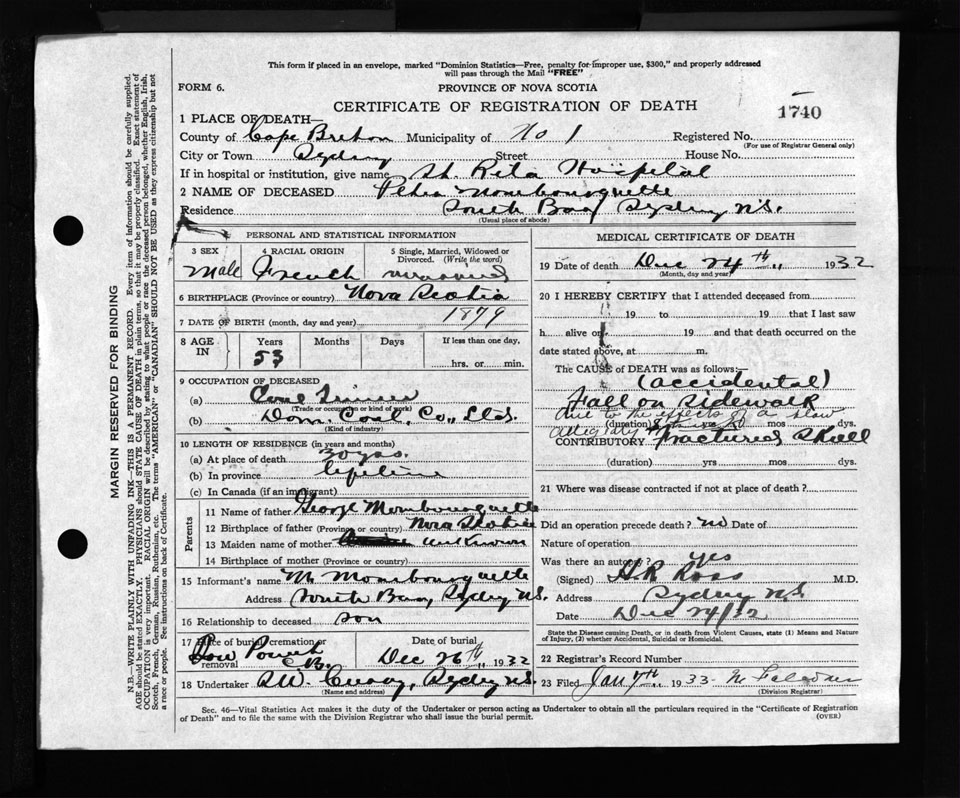 This form if placed in an envelope, marked "Dominion Statistics—Free, penalty for improper use, $300," and properly addressed
will pass through the Mail "FREE"
FORM 6.
PROVINCE OF NOVA SCOTIA
CERTIFICATE OF REGISTRATION OF DEATH
1740
1 PLACE OF DEATH—
County of Cape Breton Municipality of No 1 Registered No.
(For use of Registrar General only)
City or Town Sydney Street House No.
If in hospital or institution, give name St. Rita Hospital
2 NAME OF DECEASED Peter Mombourquette
Residence South Bar, Sydney N.S.
(Usual place of abode)
PERSONAL AND STATISTICAL INFORMATION
3 SEX Male
4 RACIAL ORIGIN French
5 Single, Married, Widowed or Divorced. (Write the word)
6 BIRTHPLACE (Province or country) Nova Scotia
7 DATE OF BIRTH (month, day and year) 1879
8 AGE IN Years 53 Months Days If less than one day, hrs. or min.
9 OCCUPATION OF DECEASED
(a) Coal
(Trade or occupation or kind of work)
(b) Dom. Coal, Co., Ltd.
(Kind of industry)
10 LENGTH OF RESIDENCE (in years and months)
(a) At place of death 30 yrs.
(b) In province lifetime
(c) In Canada (if an immigrant)
Parents
11 Name of father George Mombourquette
12 Birthplace of father (Province or country) Nova Scotia
13 Maiden name of mother unknown
14 Birthplace of mother (Province or country)
15 Informant's name M. Mombourquette
Address South Bar, Sydney N.S.
16 Relationship to deceased son
17 Place of burial, cremation or removal Low Point C.B.
Date of burial Dec 26th 1932
18 Undertaker A.W. Curry, Sydney N.S.
(Name and address)
MEDICAL CERTIFICATE OF DEATH
19 Date of death Dec 24th 1932
(Month, day and year)
20 I HEREBY CERTIFY that I attended deceased from
19 to 19 that I last saw
h alive on 19 and that death occurred on the
date stated above, at m.
The CAUSE of DEATH was as follows:—
(accidental)
Fall on sidewalk
due to the effects of a blow
(duration) yrs mos dys.
CONTRIBUTORY Fractured Skull
(duration) yrs mos dys.
21 Where was disease contracted if not at place of death?
Did an operation precede death? no Date of
Nature of operation
Was there an autopsy? yes
(Signed) H.R. Ross M.D.
Address Sydney N.S.
Date Dec 24/32
State the Disease causing Death, or in death from Violent Causes, state (1) Means and Nature
of Injury, (2) whether Accidental, Suicidal or Homicidal.
22 Registrar's Record Number
23 Filed Jan 7th 1933
(Division Registrar)
Sec. 46—Vital Statistics Act makes it the duty of the Undertaker or person acting as Undertaker to obtain all the particulars required in the "Certificate of Registration
of Death" and to file the same with the Division Registrar who shall issue the burial permit.
(OVER)
MARGIN RESERVED FOR BINDING
N.B.—WRITE PLAINLY WITH UNFADING INK—THIS IS A PERMANENT RECORD. Every item of information should be carefully supplied.
AGE should be stated EXACTLY. PHYSICIANS should STATE CAUSE OF DEATH in plain terms, so that it may be properly classified. Exact statement of
OCCUPATION is very important. RACIAL ORIGIN will be described by stating to what people or race the deceased person belonged, whether English, Irish,
Scotch, French, German, Russian, Ruthenian etc. The terms "AMERICAN" or "CANADIAN" SHOULD NOT BE USED as they express citizenship but not
a race or people. See instructions on back of Certificate.